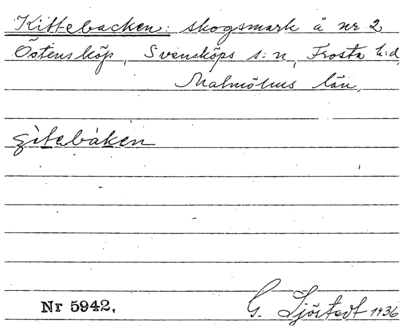 Kittebacken: skogsmark å nr 2
Östensköp, Svensköps s:n, Frosta h:d,
Malmöhus län.
gìtabàken
Nr 5942.
G. Sjöstedt 1936